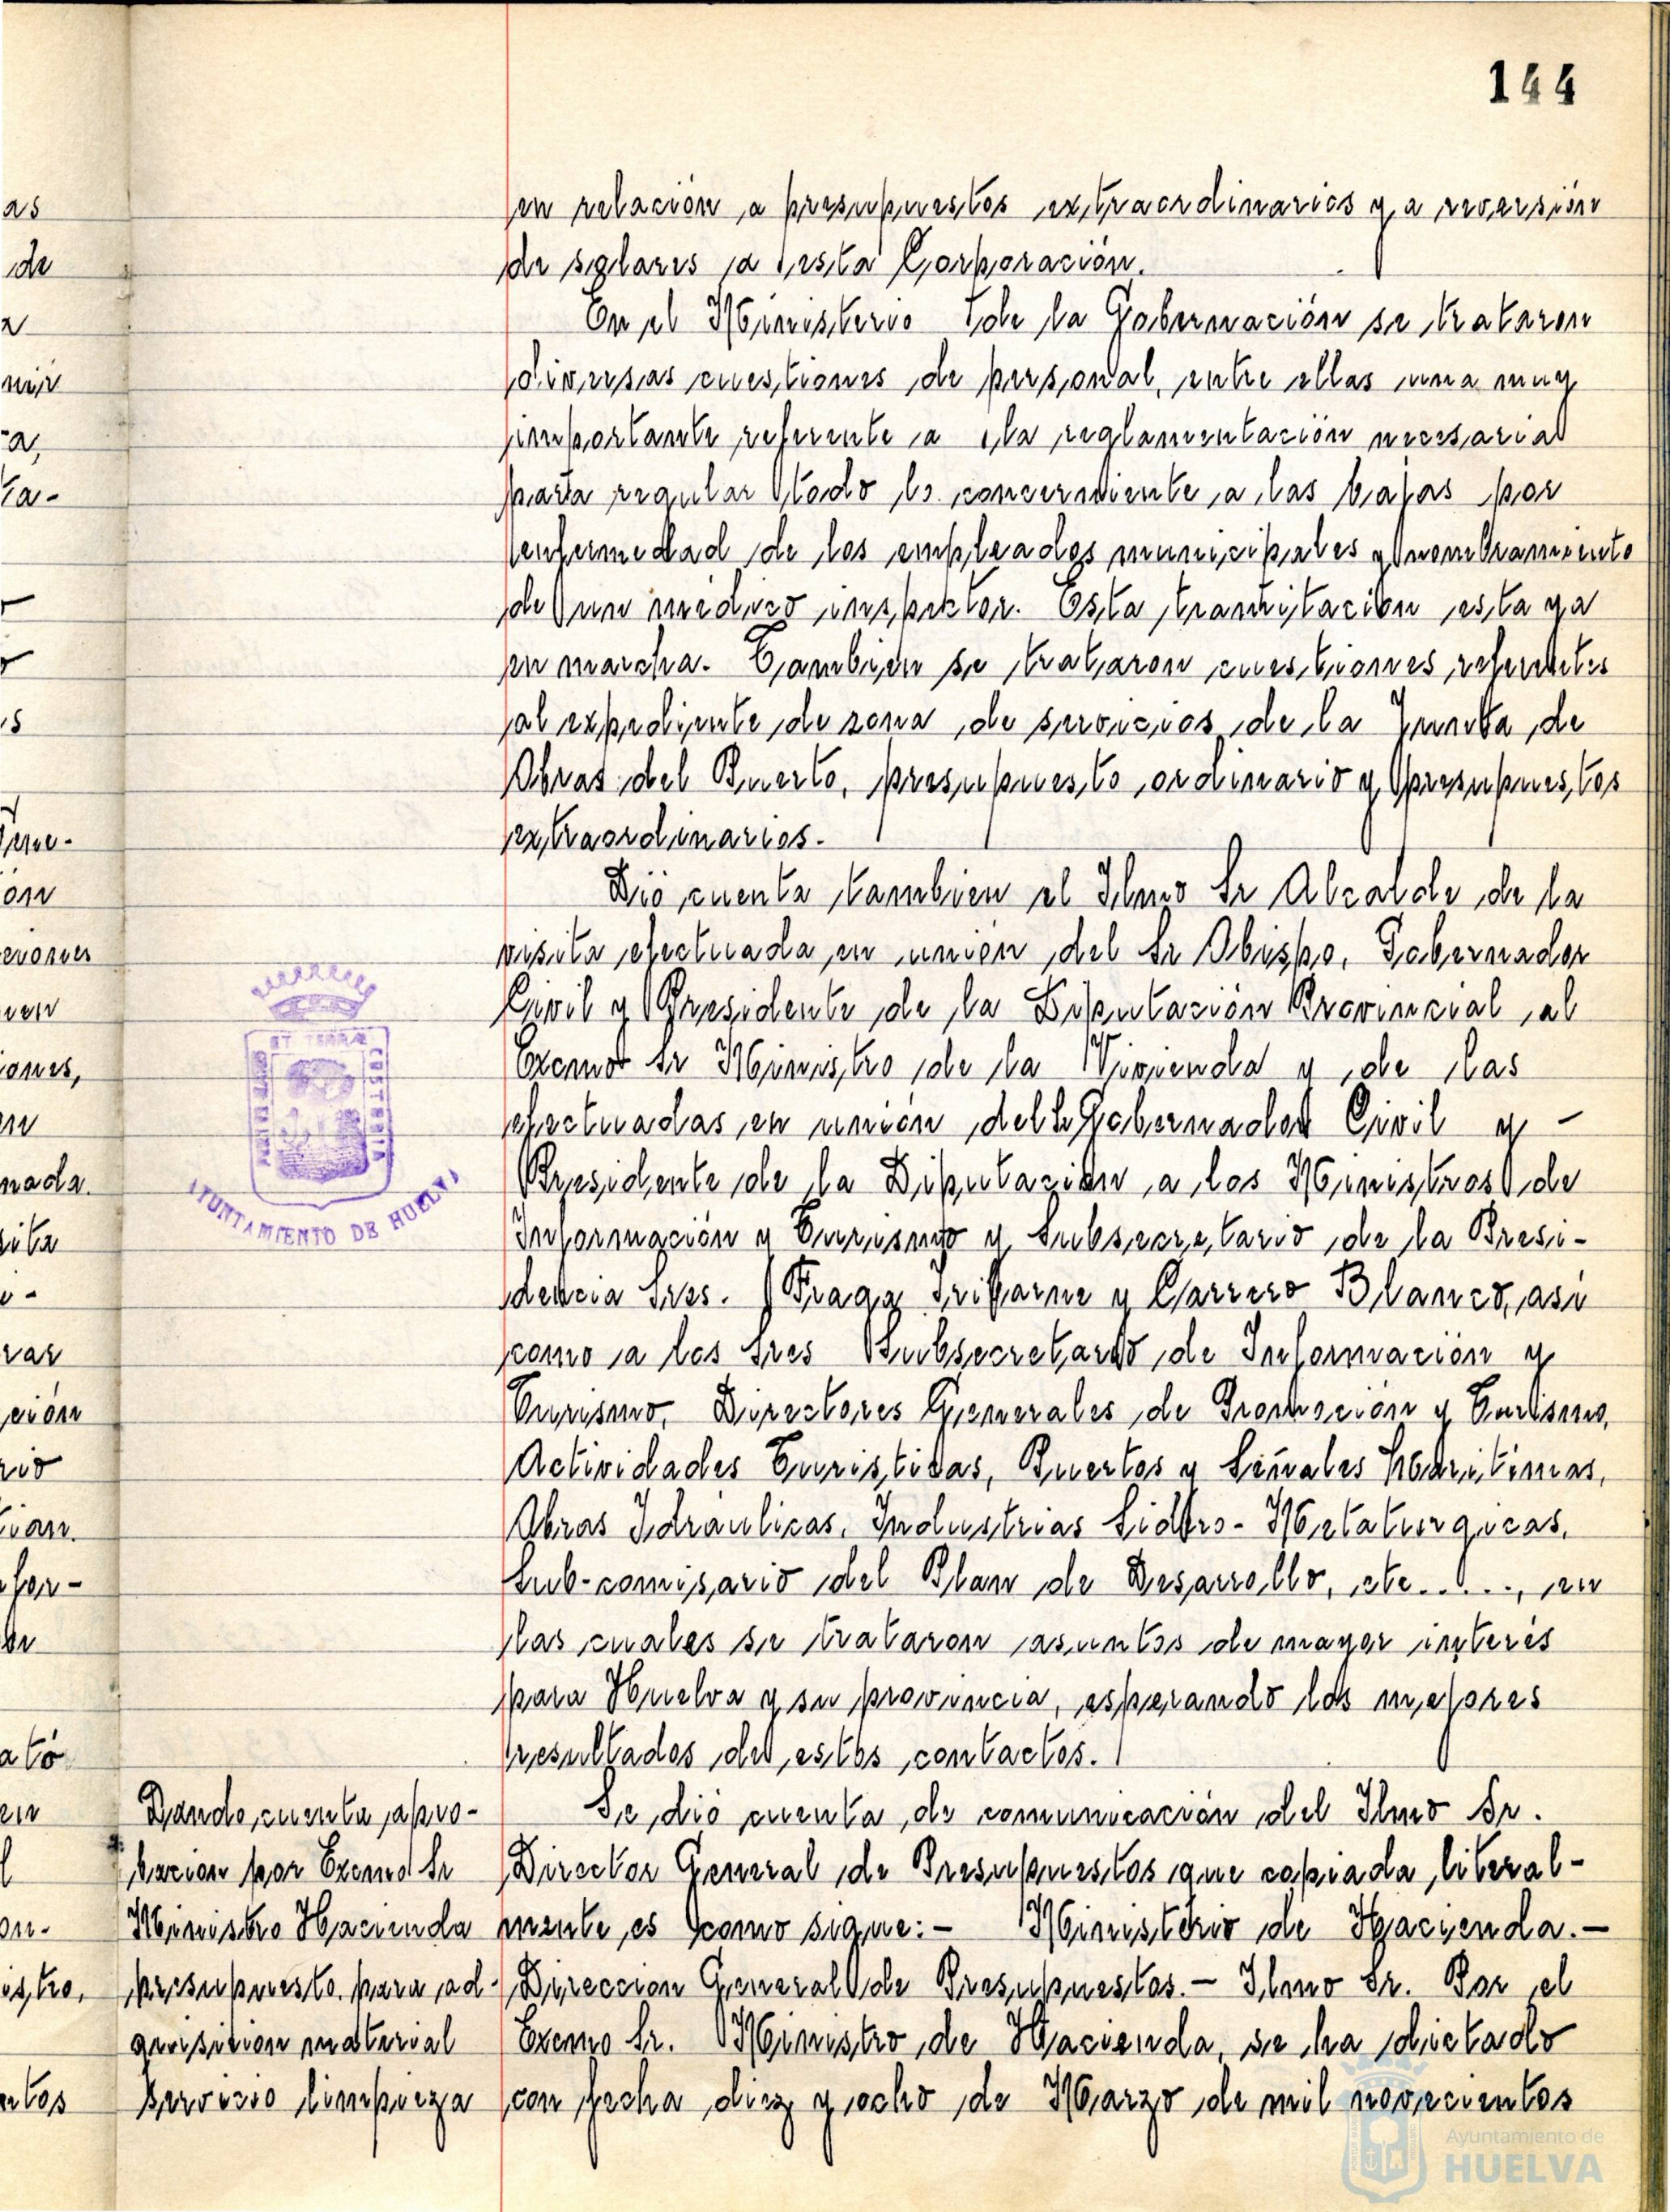 144
en relación a presupuestos extraordinarios y a reversión
de solares a esta Corporación.
En el Ministerio de la Gobernación se trataron
diversas cuestiones de personal, entre ellas una muy
importante referente a la reglamentación necesaria
para regular todo lo concerniente a las bajas por
enfermedad de los empleados municipales y nombramiento
de un médico inspector. Esta tramitación esta ya
en marcha. Tambien se trataron cuestiones referentes
al expediente de zona de servicios de la Junta de
Obras del Puerto, presupuesto ordinario y presupuestos
extraordinarios.
Dió cuenta tambien el Ilmo Sr Alcalde de la
visita efectuada en unión del Sr Obispo, Gobernador
Civil y Presidente de la Diputación Provincial al
Excmo Sr Ministro de la Vivienda y de las
efectuadas en unión del Sr Gobernador Civil y -
Presidente de la Diputación a los Ministros de
Información y Turismo y Subsecretario de la Presi-
dencia Sres. Fraga Iribarne y Carrero Blanco, asi
como a los Sres Subsecretario de Información y
Turismo, Directores Generales de Promoción y Turismo,
Actividades Turisticas, Puertos y Señales Maritimas,
Obras Idraulicas, Industrias Sidero-Metalurgicas,
Sub-comisario del Plan de Desarrollo, etc....., en
las cuales se trataron asuntos de mayor interés
para Huelva y su provincia, esperando los mejores
resultados de estos contactos.
Dando cuenta apro-
bacion por Excmo Sr
Ministro Hacienda
presupuesto para ad-
quisicion material
Servicio limpieza
Se dió cuenta de comunicación del Ilmo Sr.
Director General de Presupuestos que copiada literal-
mente es como sigue:- Ministerio de Hacienda.-
Direccion General de Presupuestos.- Ilmo Sr. Por el
Excmo Sr. Ministro de Hacienda, se ha dictado
con fecha diez y ocho de Marzo de mil novecientos
AYUNTAMIENTO DE HUELVA
as
de
nir
a,
ta-
s
ón
ven
iones,
nada.
sita
rar
ción
rio
for-
ató
en
l
on-
istro,
Ayuntamiento de
HUELVA